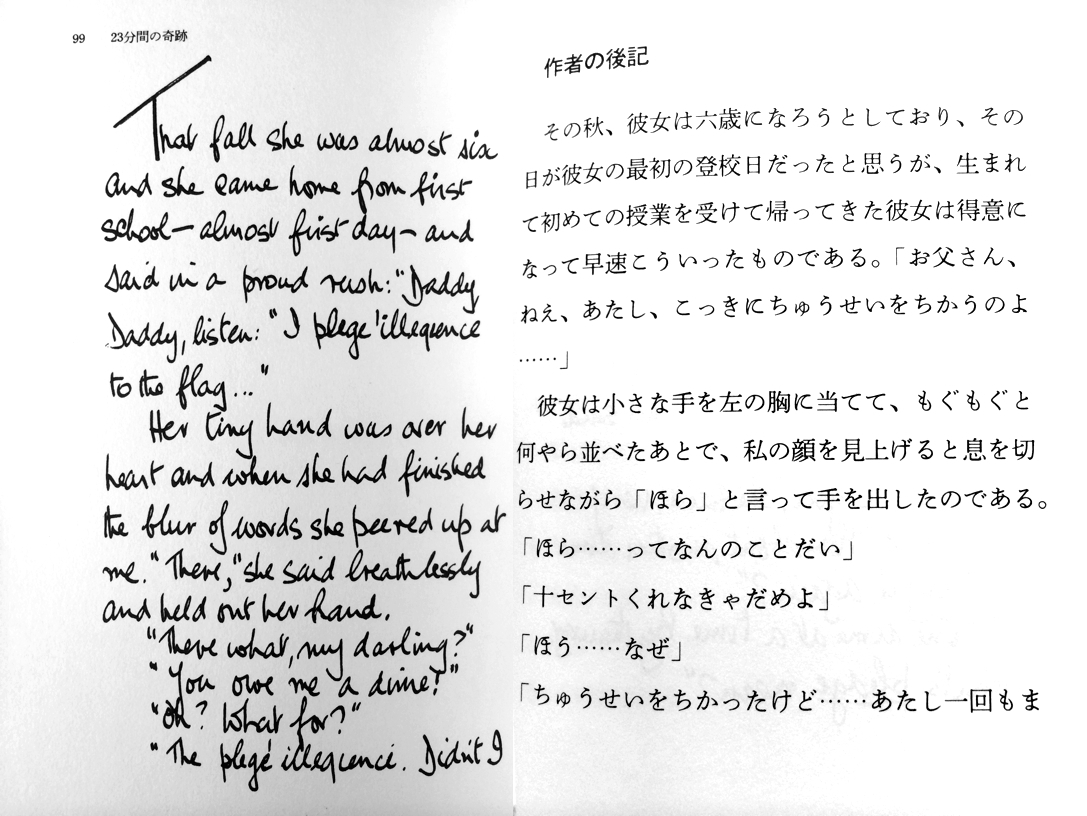 99 23分間の奇跡
That fall she was almost six
and she came home from first
school—almost first day—and
said in a proud rush: "Daddy
Daddy, listen: "I plege 'illegience
to the flag..."
Her tiny hand was over her
heart and when she had finished
the blur of words she peered up at
me. "There," she said breathlessly
and held out her hand.
"There what, my darling?"
"You owe me a dime!"
"Oh? What for?"
"The plege illegience. Didn't I
作者の後記
その秋、彼女は六歳になろうとしており、その
日が彼女の最初の登校日だったと思うが、生まれ
て初めての授業を受けて帰ってきた彼女は得意に
なって早速こういったものである。「お父さん、
ねえ、あたし、こっきにちゅうせいをちかうのよ
……」
彼女は小さな手を左の胸に当てて、もぐもぐと
何やら並べたあとで、私の顔を見上げると息を切
らせながら「ほら」と言って手を出したのである。
「ほら……ってなんのことだい」
「十セントくれなきゃだめよ」
「ほう……なぜ」
「ちゅうせいをちかったけど……あたし一回もま